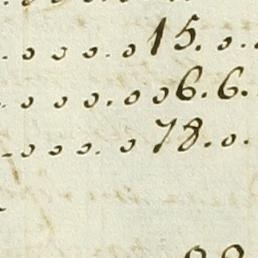 . o . o . o . o 15 . o .
. o . o . o . o o6 . 6 .
. o . o . o . o 78 . o .